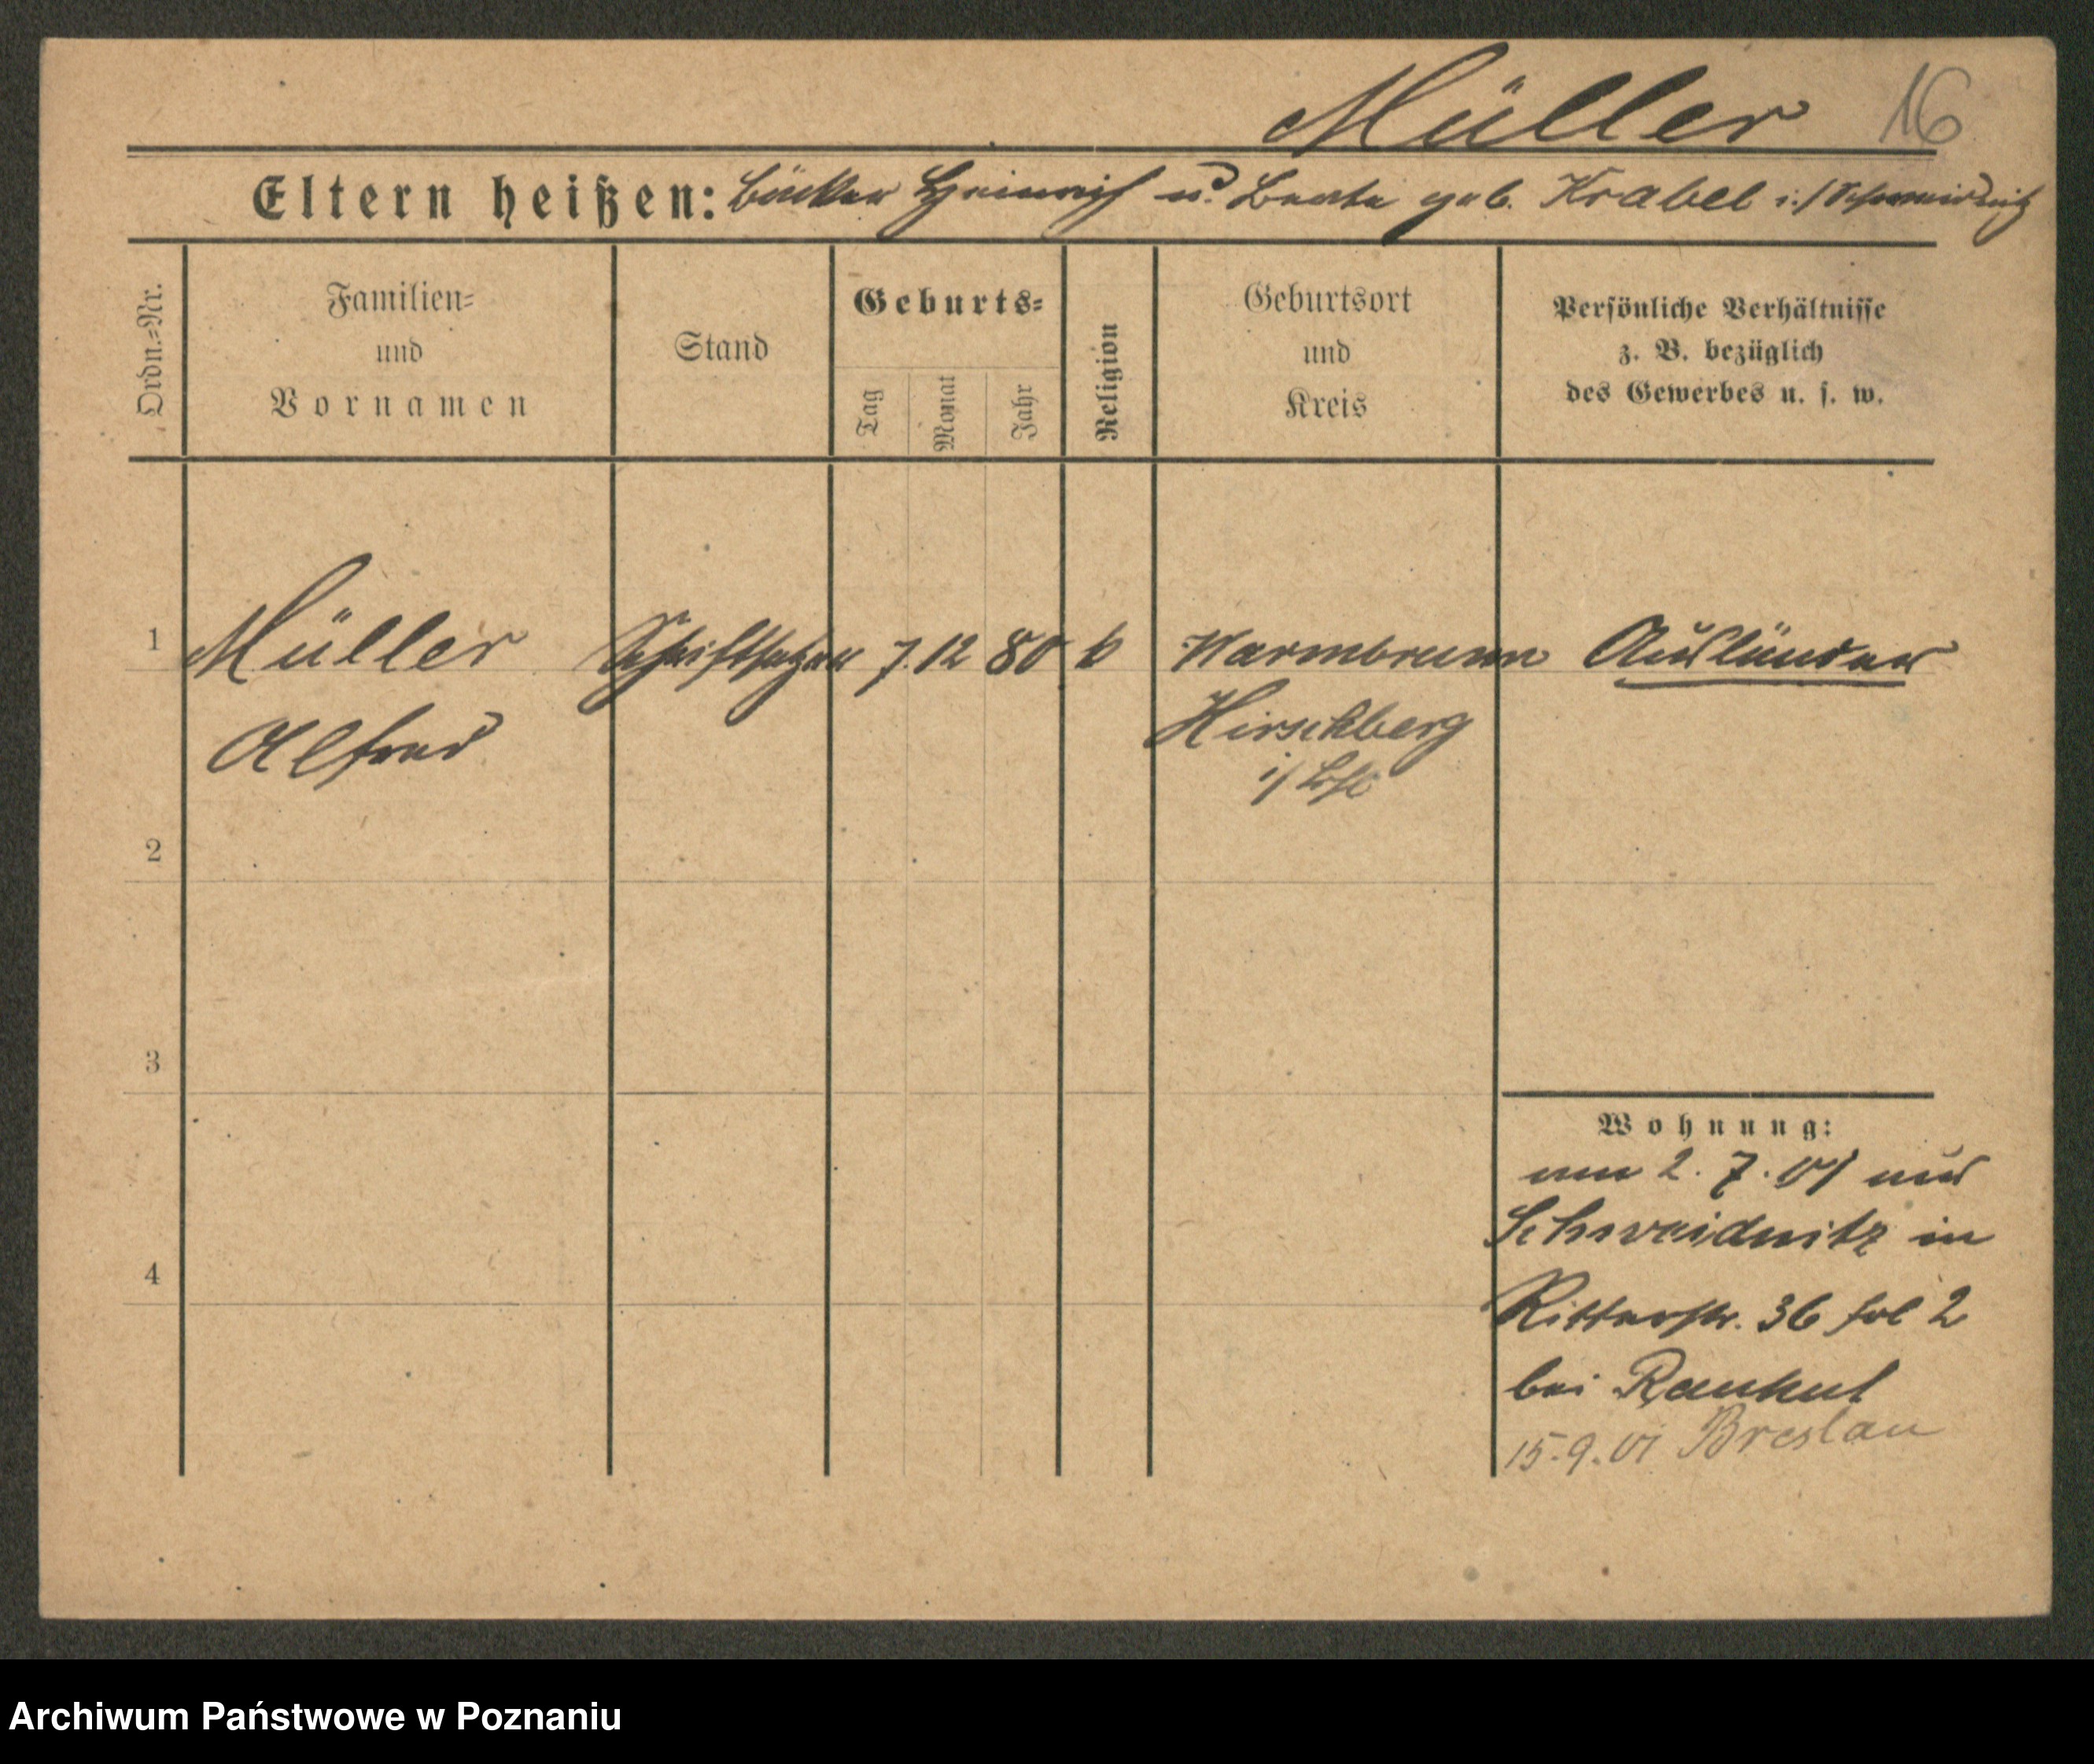 Müller 16
Eltern heißen: Bäcker Heinrich u. Beate geb. Krabel i./Schweidnitz
Ordn.=Nr.
Familien=
und
Vornamen
Stand
Geburts=
Tag
Monat
Jahr
Religion
Geburtsort
und
Kreis
Persönliche Verhältnisse
z. B. bezüglich
des Gewerbes u. s. w.
1 Müller Schriftsetzer 7. 12 80 k Warmbrunn Ausländer
Alfred Hirschberg
i/Schl
2
3
4
Wohnung:
am 2. 7. 01 aus
Schweidnitz in
Ritterstr. 36 fol 2
bei Rauhut
15. 9. 01 Breslau
Archiwum Państwowe w Poznaniu